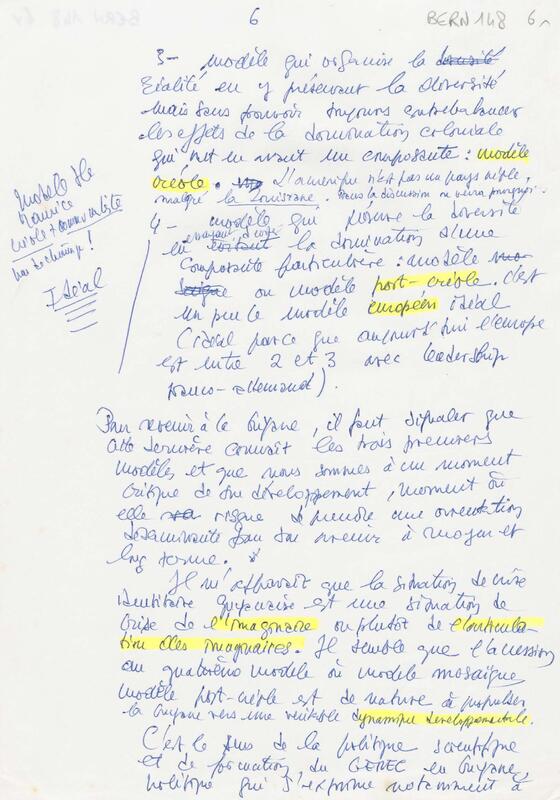 6
BERN 148 6
3- modèle qui organise la
réalité en y préservant la diversité
mais sans pouvoir toujours contrebalancer
les effets de la domination coloniale
qui met en avant une composante : modèle
créole. L'amérique n'est pas un pays créole,
malgré la Louisiane. Dans la discussion on verra pourquoi.
4- modèle qui préserve la diversité
en la domination d'une
composante particulière : modèle
ou modèle post-créole. C'est
un peu le modèle européen idéal
(idéal parce que aujourd'hui l'europe
est entre 2 et 3 avec leadership
franco-allemand).
Modèle Ile
Maurice
créole + communaliste
Idéal
Pour revenir à la Guyane, il faut signaler que
cette dernière connaît les trois premiers
modèles et que nous sommes à un moment
critique de son développement, moment où
elle risque de prendre une orientation
déterminante pour son avenir à moyen et
long terme.
Il m'apparaît que la situation de crise
identitaire guyanaise est une situation de
crise de l'imaginaire ou plutôt de l'articula-
tion des imaginaires. Il semble que l'accession
au quatrième modèle ou modèle mosaïque
modèle post-créole est de nature à propulser
la Guyane vers une véritable dynamique développementale.
C'est le sens de la politique scientifique
et de formation du GEREC en Guyane,
politique qui s'exprime notamment à